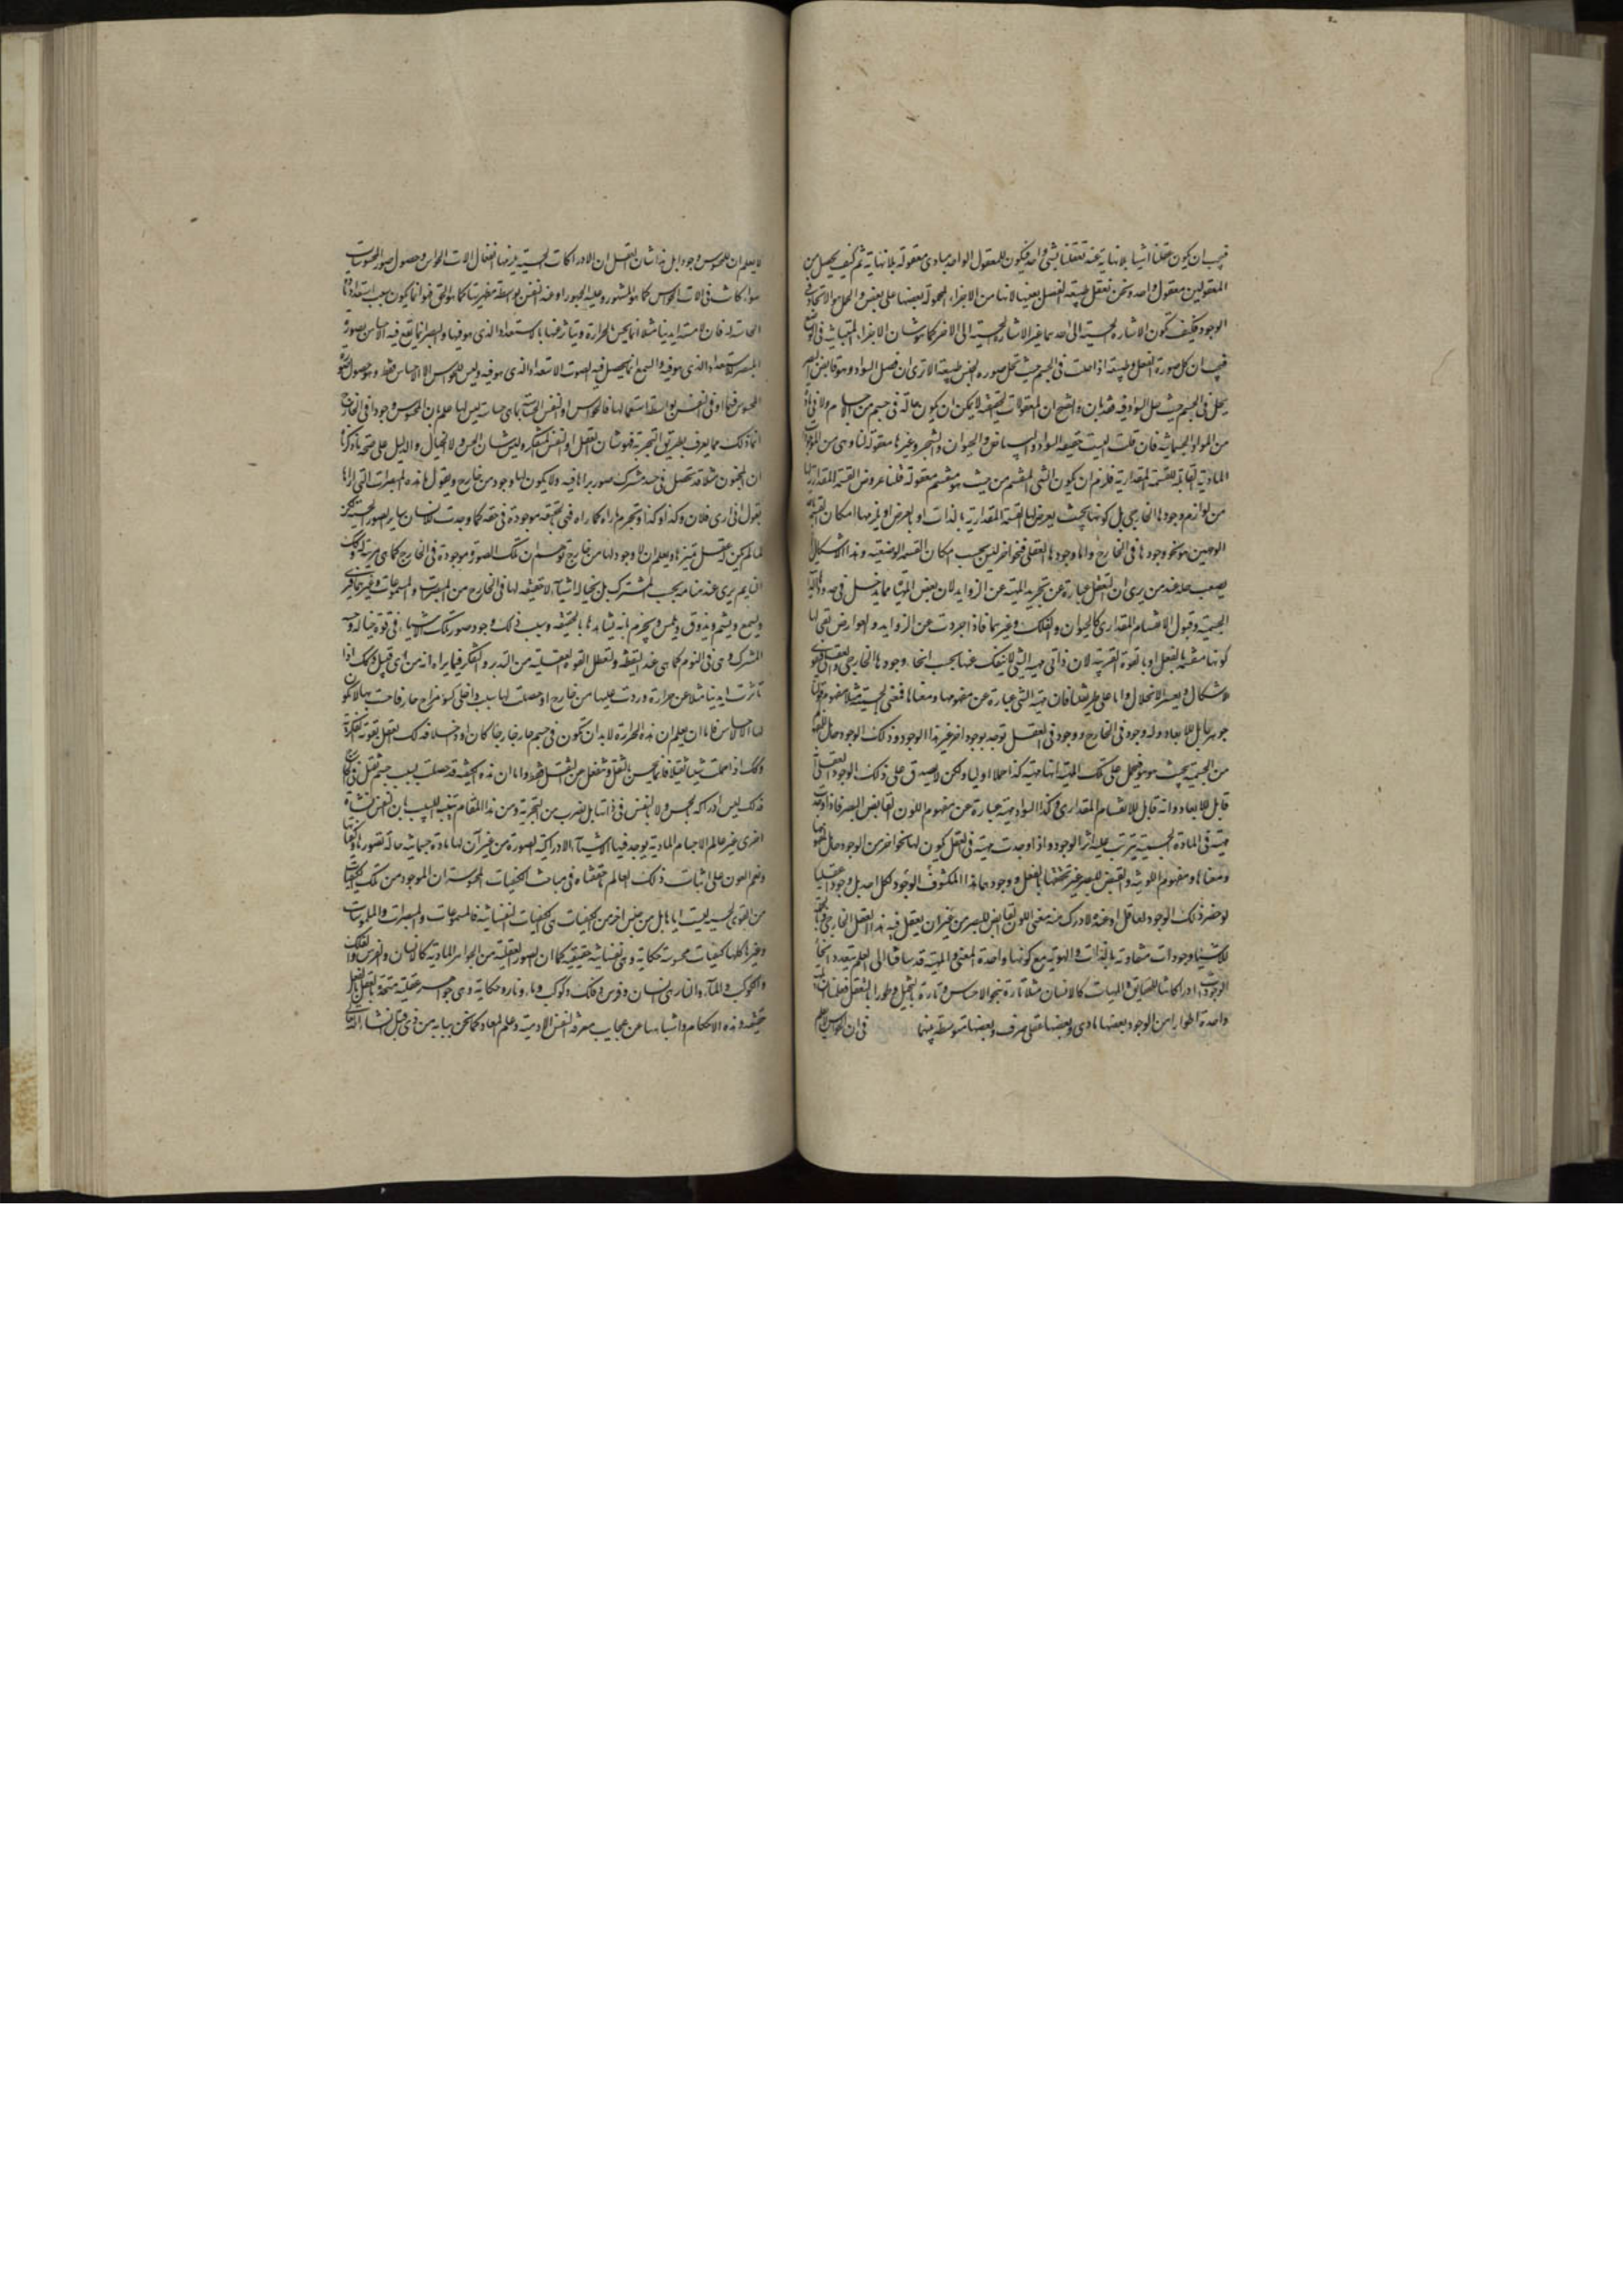 فيجب ان يكون عقلنا اشياء بلا نهاية عند تعقلنا لشئ واحد فيكون للمعقول الواحد مبادى معقولة بلا نهاية ثم كيف يحصل من
المعقولين معقول واحد ونحن نعقل طبيعة الفصل بعينها لانها من الاجزاء المحمولة بعضها على بعض والحمل هو الاتحاد فى
الوجود فكيف تكون الاشارة الحسية الى احدهما غير الاشارة الحسية الى الاخر كما هو شان الاجزاء المتباينة فى الوضع
فيجب ان كل صورة الفصل وطبيعته اذا حلت فى الجسم حيث تحل صورة الجنس وطبيعته الا ترى ان فصل السواد وهو قابض البصر
يحل فى الجسم حيث حل السواد فيه فقد بان واتضح ان المعقولات الحقيقية لا يمكن ان يكون حالة فى جسم من الاجسام ولا فى مادة
من المواد الجسمانية فان قلت اليست حقيقة السواد والبياض والحيوان والشجر وغيرها معقولة لنا وهى من الموجودات
المادية القابلة للقسمة المقدارية فلزم ان يكون الشئ المنقسم من حيث هو منقسم معقولة قلنا عروض القسمة المقدارية لها
من لوازم وجودها الخارجى بل كونها بحيث يعرض لها القسمة المقدارية بالذات او بالعرض او يلزمها امكان القسمة
الوهمين هو نحو وجودها فى الخارج واما وجودها العقلى فنحو اخر ليس بحسبه امكان القسمة الوضعية وهذا الاشكال
يصعب حله عند من يرى ان التعقل عبارة عن تجريد المهية عن الزوايد لان بعض المهيات مما يدخل فى حدودها
الجسمية وقبول الانقسام المقدارى كالحيوان والفلك وغيرهما فاذا جردت عن الزوايد والعوارض بقى لها
كونها منقسمة بالفعل او بالقوة القريبة لان ذاتى مهية الشئ لا ينفك عنها بحسب انحاء وجودها الخارجى والعقلى فيقوى
الاشكال ويعسر الانحلال واما على طريقتنا فان مهية الشئ عبارة عن مفهومها ومعناها فمعنى الجسمية مثلا مفهوم قولنا
جوهر قابل للابعاد وله وجود فى الخارج ووجود فى العقل توجد بوجود اخر غير هذا الوجود وذلك الوجود حامل لمفهوم
من الجسمية بحيث هو هو فيحمل على تلك المهية انها مهية كذا حملا اوليا ولكن لا يصدق على ذلك الوجود العقلى انه
قابل للابعاد وانه قابل للانقسام المقدارى وكذا السواد مهية عبارة عن مفهوم اللون القابض البصر فاذا وجدت
مهية فى المادة الجسمية يترتب عليه اثر الوجود واذا وجدت مهية فى العقل يكون لها نحو اخر من الوجود حامل لمفهومها
ومعناها ومفهوم اللونية والقبض للبصر غير تحققها بالفعل ووجودهما هذا المكشوف الوجود لكل احد بل وجودا عقليا
لو حضر ذلك الوجود لعاقل او عنده لا درك منه معنى اللون القابض للبصر من غير ان يعقل فيه هذا العقل الخارجى فالحاصل
للاشياء وجودات متفاوتة بالذات والهوية مع كونها واحدة المعنى والمهية قد ساقنا الى العلم بتعدد انحاء
الوجودات ادراكاتنا للحقايق والمهيات كالانسان مثلا تارة بنحو الاحساس وتارة بالتخيل وطورا بالتعقل فعلمنا ان لمهية
واحدة اطوارا من الوجود بعضها مادى وبعضها عقلى صرف وبعضها متوسطة بينهما فى ان الحواس لا يعلم
لا يعلم ان للمحسوس وجودا بل هذا شان العقل ان الادراكات الحسية يلزمها انفعال الات الحواس وحصول صور المحسوسات
سواء كانت فى الات الحواس كما هو المشهور وعليه الجمهور او عند النفس بواسطة مظهريتها كما هو الحق فهو انما يكون بسبب استعداد مادة
الحاسة له فان لامسة ايدينا مثلا انما يحس بالحرارة ويتاثر عنها بالاستعداد الذى هو فيها والبصر انما يقع فيه الاحساس بصورة
المبصر للاستعداد الذى هو فيه والسمع انما يحصل فيه الصوت الاستعداد الذى هو فيه وليس للحواس الا الاحساس فقط وهو حصول صورة
المحسوس فيها او فى النفس بواسطة استعمالها فالحواس او النفس الحساسة بما هى حساسة ليس لها علم بان المحسوس وجودا فى الخارج
انما ذلك مما يعرف بطريق التجربة فهو شان العقل او النفس المتفكرة وليس شان الحس ولا الخيال والدليل على صحة ما ذكرنا
ان المجنون مثلا قد تحصل فى حسه المشترك صور يراها فيه ولا يكون لها وجود من خارج ويقول ما هذه المبصرات التى اراها
يقول انى ارى فلان وكذا وكذا ويجزم ما راه كما راه فهى بالحقيقة موجودة فى حقه كما وجدت للانسان ساير الصور الحسية لكن
لما لم يكن له عقل يميزها ويعلم ان لا وجود لها من خارج توهم ان تلك الصورة موجودة فى الخارج كما هى مرئية له وكذلك
النايم يرى عند منامه بحسه المشترك بل بخياله اشياء لا حقيقة لها فى الخارج من المبصرات والمسموعات وغيرهما فيرى
ويسمع ويشم ويذوق ويلمس ويجزم بانه يشاهدها بالحقيقة وسبب ذلك وجود صور تلك الاشياء فى قوة خياله وحسه
المشترك وهى فى النوم كما هى عند اليقظة ولتعطل القوة العقلية من التدبر والتفكر فيما يراه انه من اى قبيل وكذلك اذا
تاثرت ايدينا مثلا عن حرارة وردت عليها من خارج او حصلت لها بسبب داخلى كسوء مزاج حار فاحست بها لا يكون
لها الا الاحساس فاما ان يعلم ان هذه الحرارة لا بد ان تكون فى جسم حار خارجا كان او داخلا فذلك للعقل بقوته الفكرية
وكذلك اذا حملت شيئا ثقيلا فانما يحس بالثقل وتنفعل عن الثقل فقط واما ان هذه الكيفية قد حصلت بسبب جسم ثقيل فى الخارج
فذلك ليس ادراكه بالحس ولا بالنفس فى ذاتها بل بضرب من التجربة ومن هذا المقام يتنبه اللبيب بان للنفس نشاة
اخرى غير عالم الاجسام المادية يوجد فيها الاشياء الادراكية الصورية من غير ان لها مادة جسمانية حاملة لصورها وكيفياتها
ونعم العون على اثبات ذلك العالم ما حققناه فى مباحث الكيفيات المحسوسة ان الموجود من تلك الكيفيات
من القوى الحسية ليست اياها بل من جنس اخر من الكيفيات هى الكيفيات النفسانية فالمسموعات والمبصرات والملموسات
وغيرها كلها كيفيات محسوسة حكاية وهى نفسانية حقيقية كما ان الصور العقلية من الجواهر المادية كالانسان والفرس والفلك
والكوكب والماء والنار هى انسان وفرس وفلك وكوكب وماء ونار حكاية وهى جواهر عقلية متحدة بالعقل بالفعل
حقيقة وهذه الاحكام واشباهها من عجايب معرفة النفس الادمية وعلم المعاد كما نحن ببيانه من ذى قبل انشاء الله تعالى